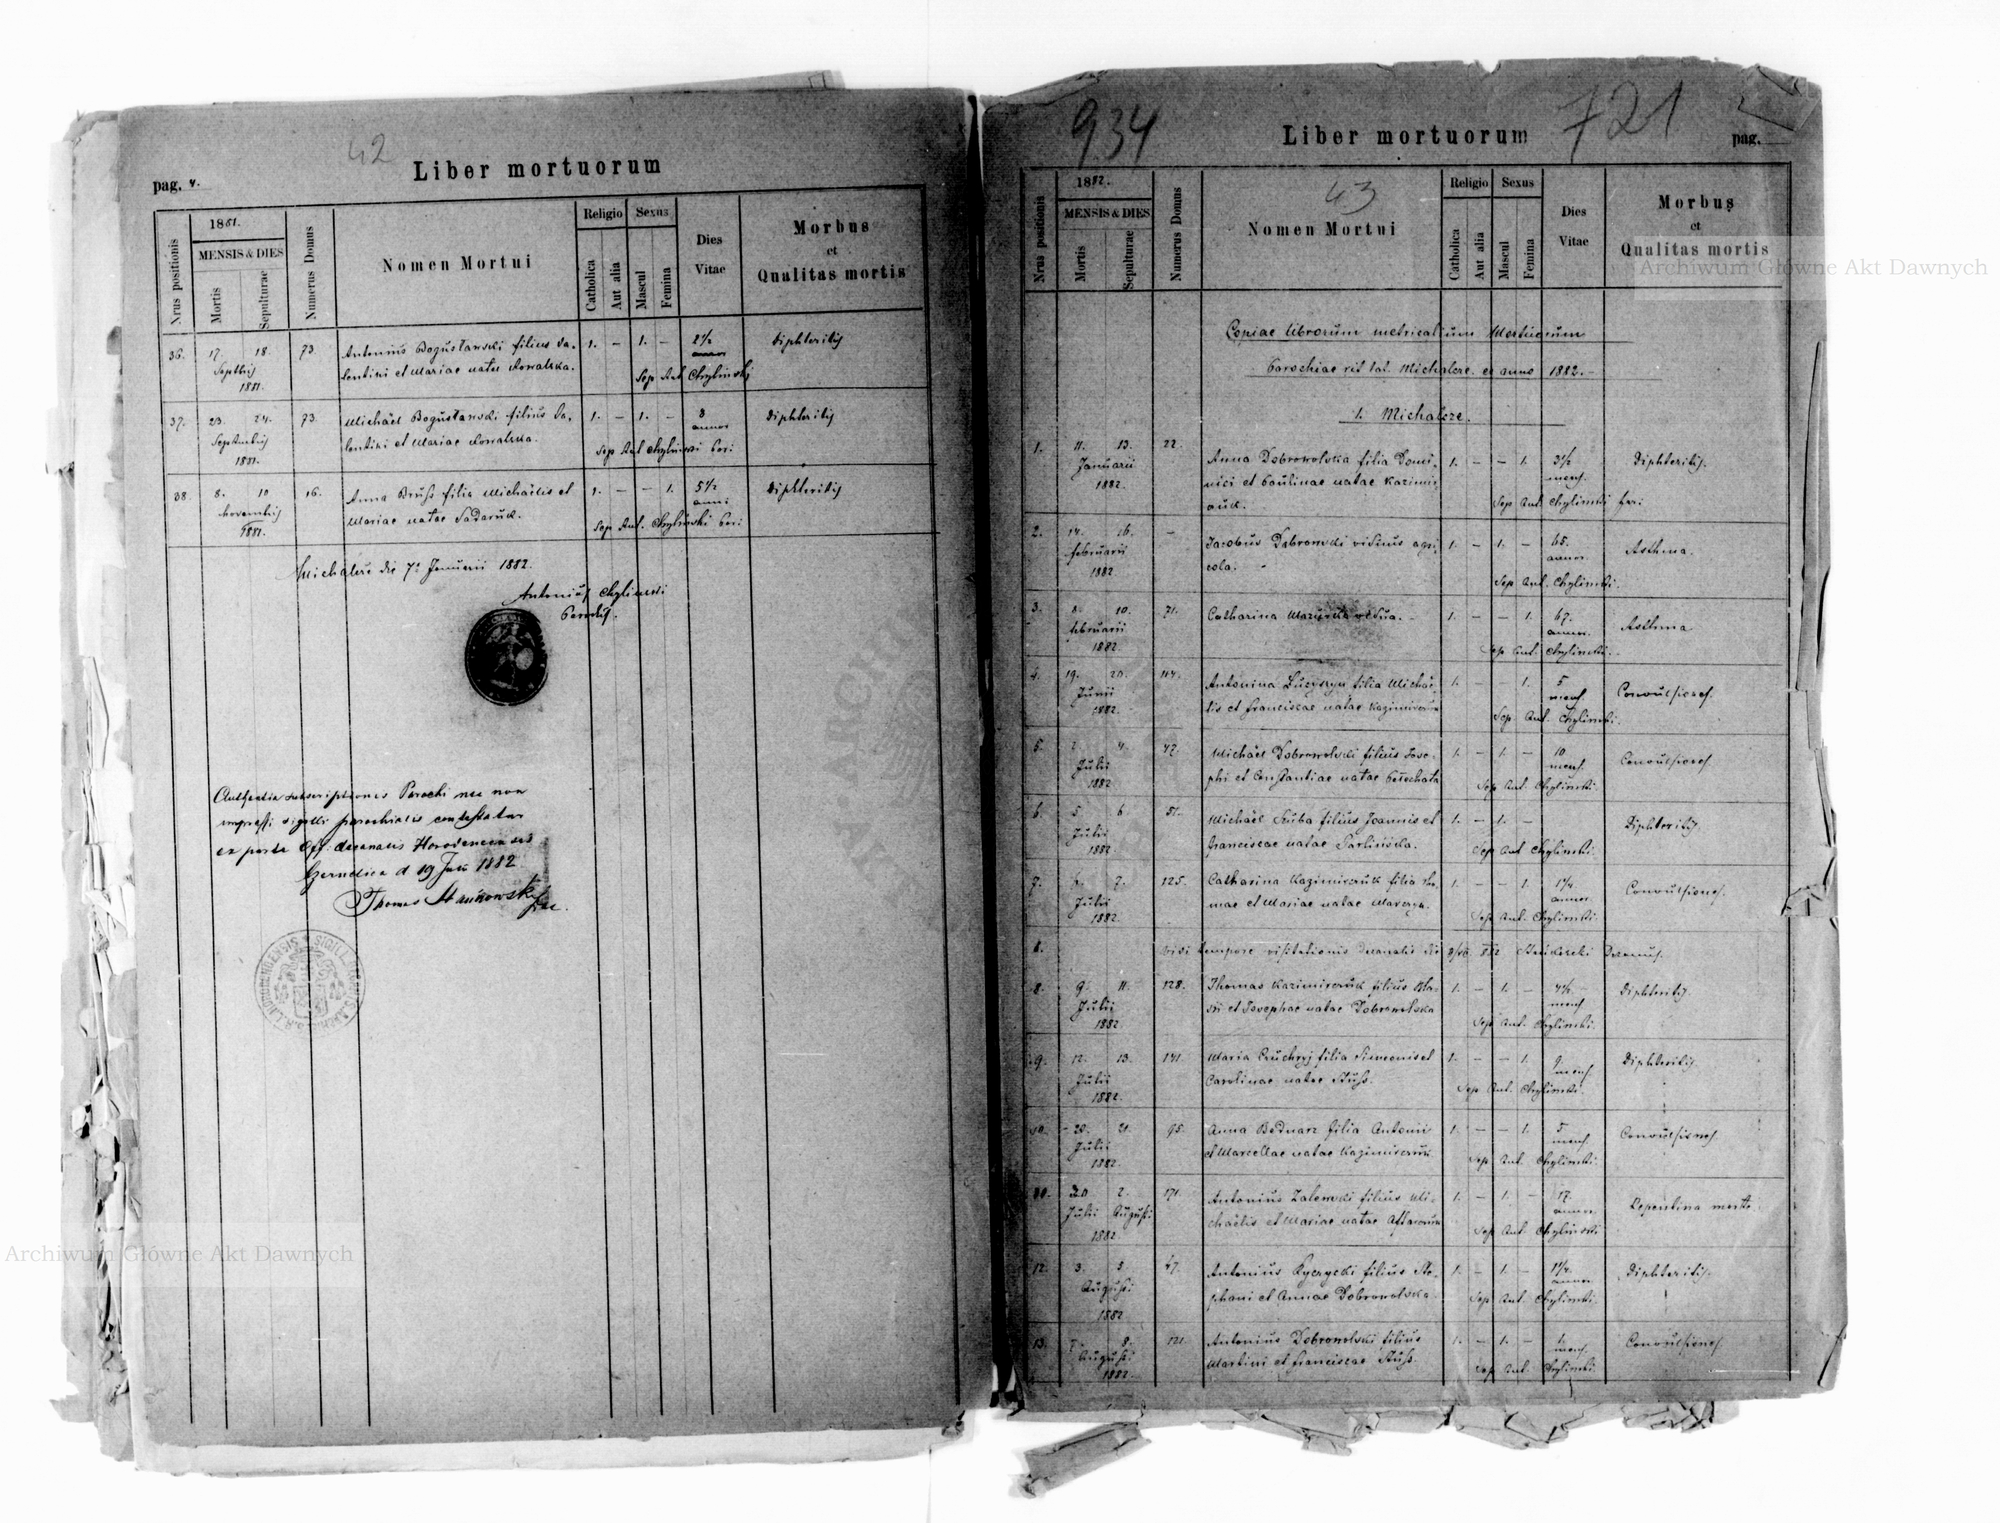 42
Liber mortuorum
pag. 4.
Nrus positionis
1881.
MENSIS & DIES
Mortis
Sepulturae
Numerus Domus
Nomen Mortui
Religio
Catholica
Aut alia
Sexus
Mascul
Femina
Dies
Vitae
Morbus
et
Qualitas mortis
36. 17. 18. 73. Antonius Bogusławski filius Va- 1. - 1. - 2 1/2 Diphteritis
Septbris lentini et Mariae natae Kowalska. annor
1881. Sep Ant Chylinski
37. 23. 24. 73. Michaël Bogusławski filius Va- 1. - 1. - 3 Diphteritis
Septembris lentini et Mariae Kowalska. annor
1881. Sep Ant Chylinski Par:
38. 8. 10 16. Anna Bruss filia Michaëlis et 1. - - 1. 5 1/2 Diphteritis
Novembris Mariae natae anni
1881. Sep Ant. Chylinski Par:
Michalcze die 7a Januarii 1882.
Antonius Chylinski
Parochus.
subscriptionis Parochi nec non
impressi sigilli parochialis contestatur
ex parte Off. decanatus Horodencensis
Czernelica d 19 1882
Thomas
934
Liber mortuorum
721
pag.
43
Nrus positionis
1882.
MENSIS & DIES
Mortis
Sepulturae
Numerus Domus
Nomen Mortui
Religio
Catholica
Aut alia
Sexus
Mascul
Femina
Dies
Vitae
Morbus
et
Qualitas mortis
Archiwum Główne Akt Dawnych
Copiae librorum metricalium Mortuorum
Parochiae rit lat. Michalcze. ex anno 1882.-
1. Michalcze.
1. 11. 13. 22. Anna Dobrowolska filia Domi- 1. - - 1. 3 1/2 Diphteritis.
Januarii nici et Paulinae natae Kazimir- mens.
1882. czuk. Sep Ant Chylinski Par:
2. 14. 16. - Jacobus Dobrowolski viduus agri- 1. - 1. - 65. Asthma.
februarii cola. - annor.
1882. Sep Ant. Chylinski.
3. 8. 10. 71. Catharina vidua. - 1. - - 1. 67. Asthma
februarii annor.
1882. Sep Ant. Chylinski.
4. 19. 20. 114. Antonina filia Michaë- 1. - - 1. 5 Convulsiones.
Junii lis et Franciscae natae Kazimirczuk mens
1882. Sep Ant. Chylinski.
5. 4. 47. Michaël Dobrowolski filius Jose- 1. - 1. - 10 Convulsiones.
Julii phi et Constantiae natae mens.
1882 Sep Ant. Chylinski.
6. 5. 6 51. Michaël filius Joannis et 1. - 1. - Diphteritis.
Julii Franciscae natae
1882. Sep Ant Chylinski.
7. 7. 125. Catharina Kazimirczuk filia Tho- 1. - - 1. 1 1/4 Convulsiones.
Julii mae et Mariae natae annor.
1882. Sep Ant. Chylinski.
8. Vidi tempore visitationis decanalis die 882 Decanus.
8. 9. 11. 128. Thomas Kazimirczuk filius Bla- 1. - 1. - Diphteritis.
Julii sii et Josephae natae Dobrowolska mens
1882 Sep Ant. Chylinski.
9. 12. 13. 141. Maria filia Simeonis et 1. - - 1. 9. Diphteritis.
Julii Carolinae natae mens
1882. Sep Ant. Chylinski.
10. 20. 21. 95. Anna Bednarz filia Antonii 1. - - 1. 5 Convulsiones.
Julii et Marcellae natae Kazimirczuk. mens.
1882. Sep Ant. Chylinski.
2. 171. Antonius Zalewski filius Mi- 1. - 1. - 17. Repentina morte.
Julii Augusti chaëlis et Mariae natae annor.
1882. Sep Ant. Chylinski
12. 3. 5. 47. Antonius filius Ste- 1. - 1. - 1 1/4. Diphteritis.
Augusti. phani et Annae Dobrowolska. annor.
1882 Sep Ant. Chylinski.
13. 7. 8. 121. Antonius Dobrowolski filius 1. - 1. - 1. Convulsiones.
Augusti Martini et Franciscae mens.
1882. Sep Ant. Chylinski.
Archiwum Główne Akt Dawnych